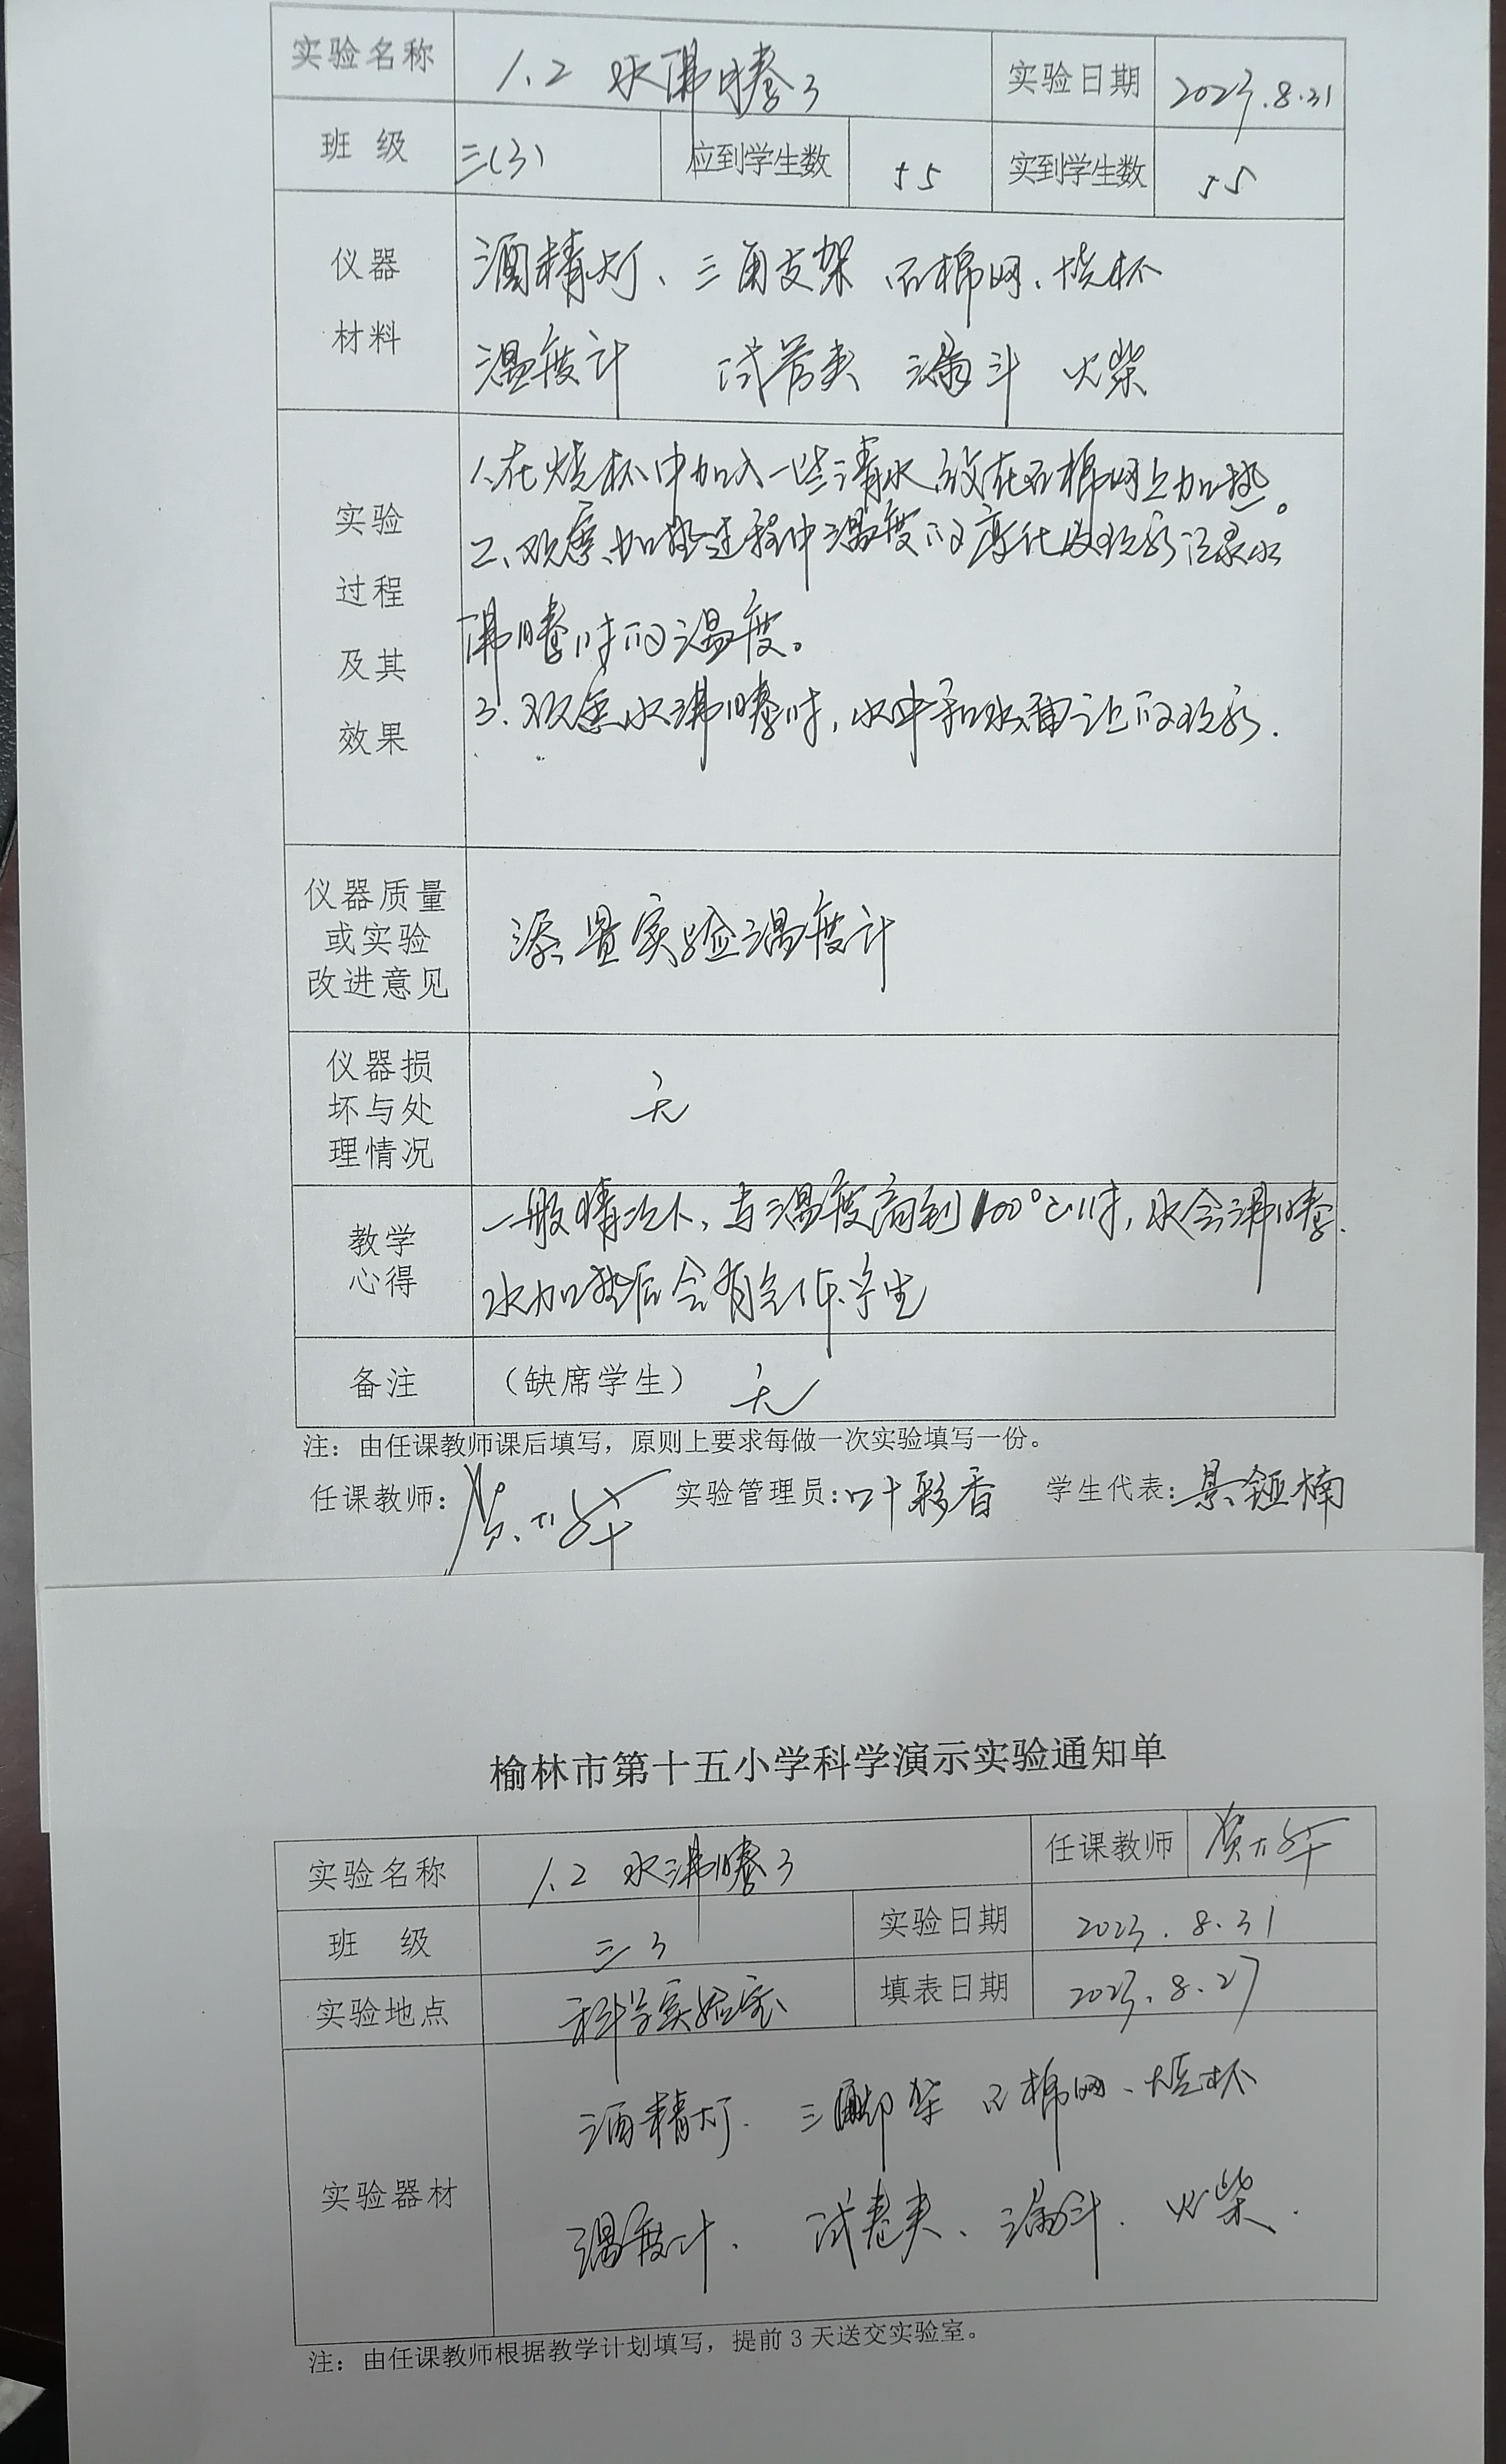 实验名称 1.2 水沸腾了 实验日期 2023.8.31
班 级 三(3) 应到学生数 55 实到学生数 55
仪器
材料
酒精灯、三角支架 石棉网、烧杯
温度计 试管夹 漏斗 火柴
实验
过程
及其
效果
1.在烧杯中加入一些清水,放在石棉网上加热。
2、观察加热过程中温度的变化及现象记录水
沸腾时的温度。
3.观察水沸腾时,水中和水面上的现象.
仪器质量
或实验
改进意见
添置实验温度计
仪器损
坏与处
理情况
无
教学
心得
一般情况下,当温度高到100℃时,水会沸腾.
水加热后会有气体产生
备注 (缺席学生) 无
注：由任课教师课后填写，原则上要求每做一次实验填写一份。
任课教师： 实验管理员:叶彩香 学生代表:景铔楠
榆林市第十五小学科学演示实验通知单
实验名称 1.2 水沸腾了 任课教师
班 级 三3 实验日期 2023.8.31
实验地点 科学实验室 填表日期 2023.8.27
实验器材
酒精灯. 三脚架 石棉网、烧杯
温度计. 试管夹、漏斗. 火柴.
注：由任课教师根据教学计划填写，提前3天送交实验室。